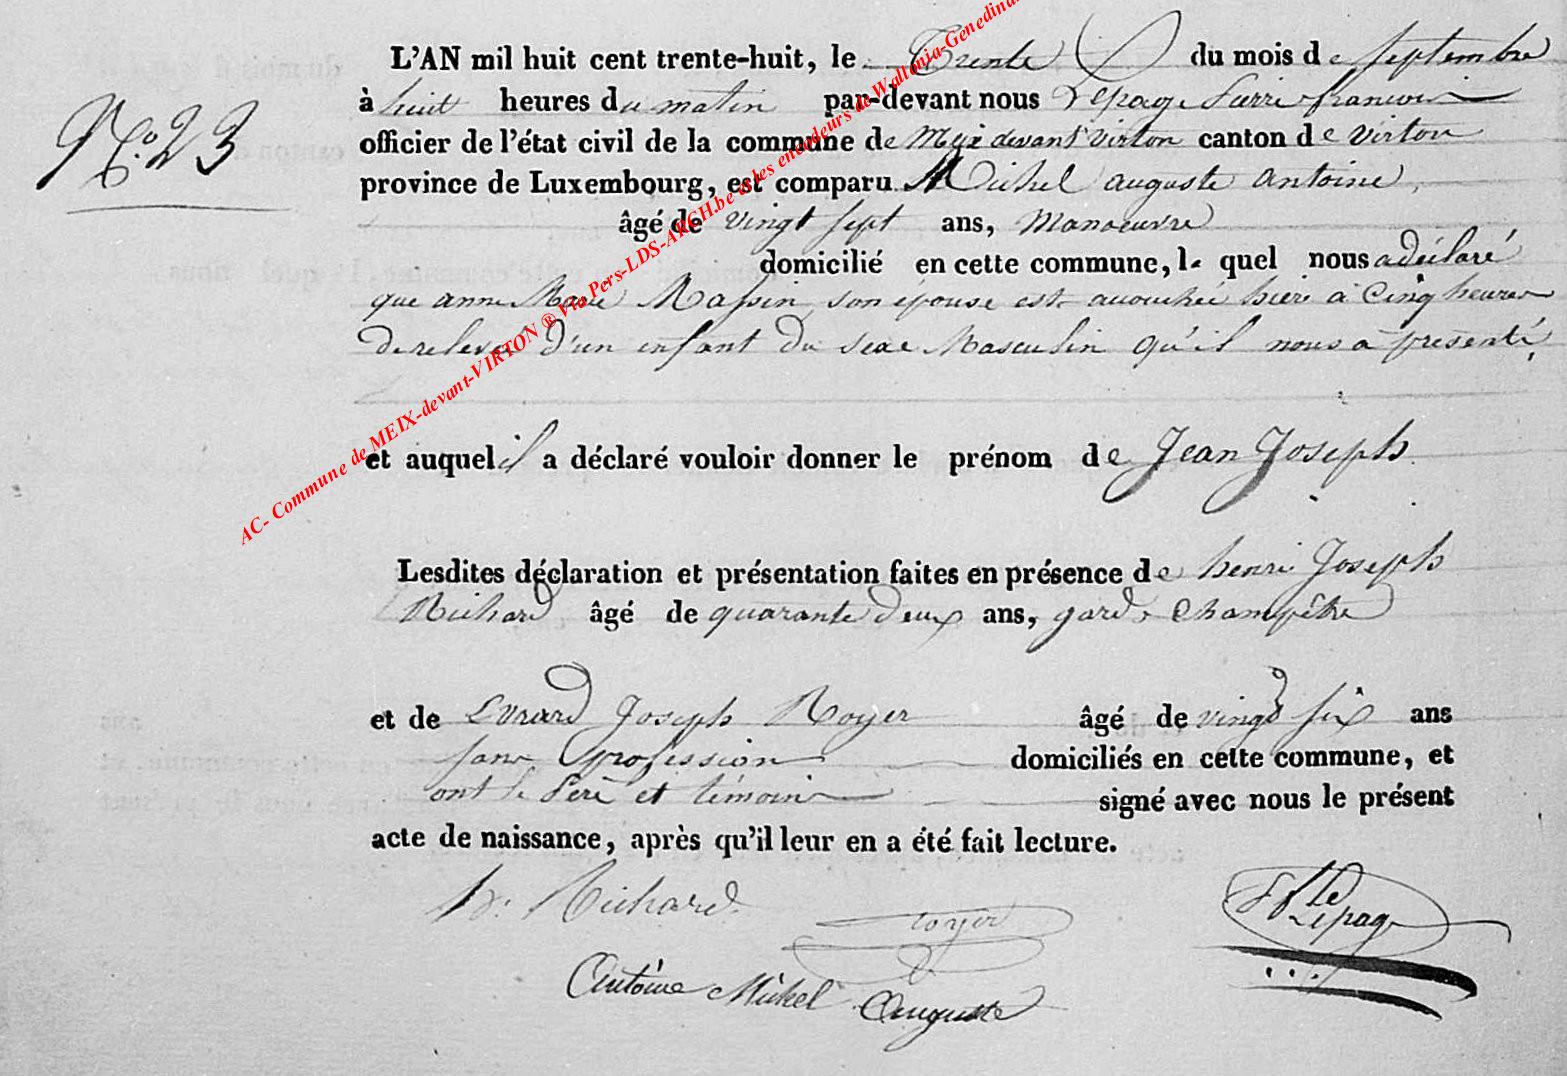 L'AN mil huit cent trente-huit, le Trente du mois de Septembre
N.o 23
à huit heures du matin par-devant nous Lepage Pierre francois
officier de l'état civil de la commune de Meix devant Virton canton de Virton
province de Luxembourg, est comparu Michel auguste antoine,
âgé de vingt sept ans, Manoeuvre
domicilié en cette commune, le quel nous a déclaré
que anne Marie Massin, son épouse est accouchée hier à Cinq heures
de relevé d'un enfant du sexe Masculin qu'il nous a présenté,
et auquel il a déclaré vouloir donner le prénom de Jean Joseph.
Lesdites déclaration et présentation faites en présence de henri Joseph
Richard âgé de quarante deux ans, garde Champêtre
et de Evrard Joseph Royer âgé de vingt six ans
sans profession domiciliés en cette commune, et
ont le Père et témoins signé avec nous le présent
acte de naissance, après qu'il leur en a été fait lecture.
h. Richard. royer Lepage
Antoine Michel Auguste
AC- Commune de MEIX-devant-VIRTON ® Via Pers-LDS-ARCH.be et les encodeurs de Wallonia-Genedinar